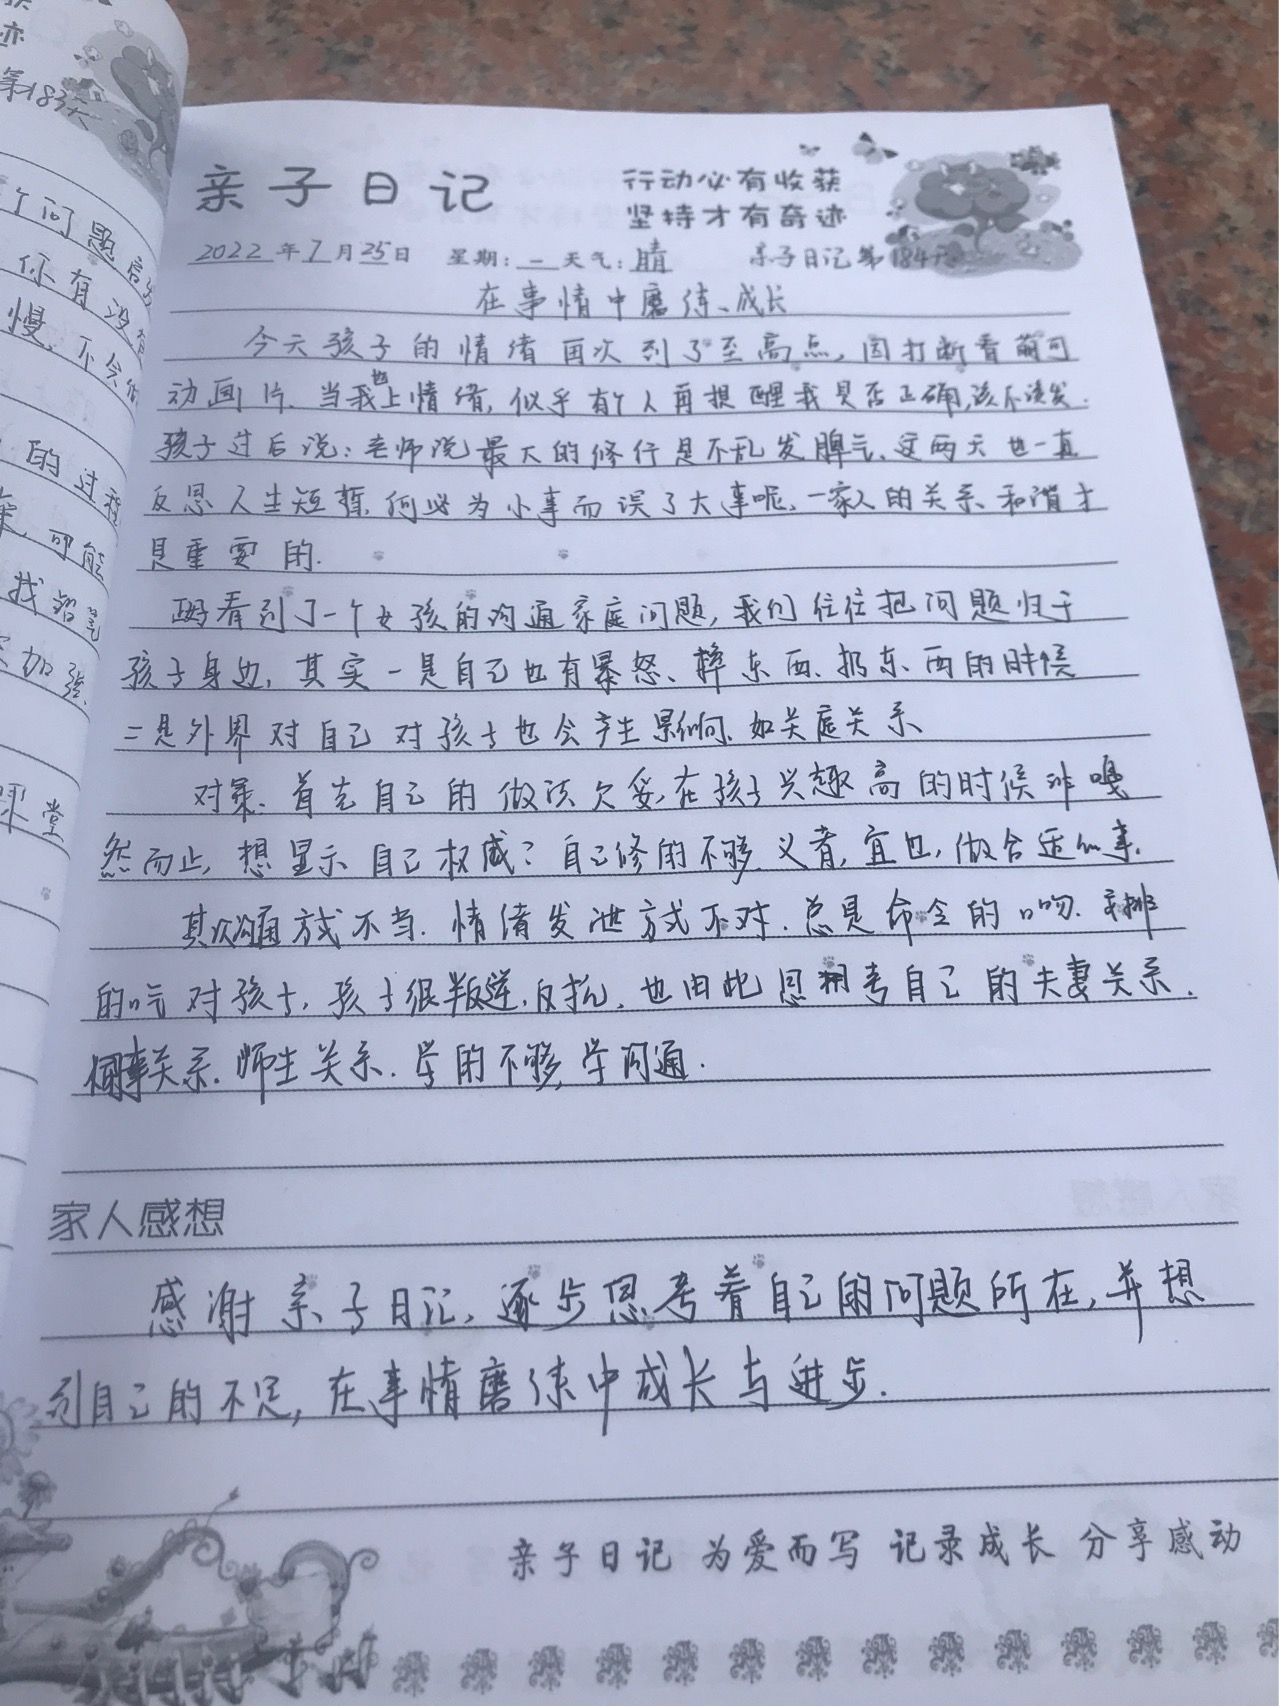 亦
第183天
个问题
你有没
慢,不会
的过程
可能
找
加强
课堂
亲子日记
行动必有收获
坚持才有奇迹
2022年7月25日 星期:一 天气:晴 亲子日记第184天
在事情中磨练、成长
今天孩子的情绪再次到了至高点,因打断看萌可
动画片、当我也上情绪,似乎有个人再提醒我是否正确,该不该发.
孩子过后说:老师说最大的修行是不乱发脾气、这两天也一直
反思人生短暂,何必为小事而误了大事呢、一家人的关系、和谐才
是重要的.
看到了一个女孩的沟通家庭问题,我们往往把问题归于
孩子身边,其实一是自己也有暴怒、摔东西、扔东西的时候
二是外界对自己对孩子也会产生影响、如关庭关系
对策:首先自己的做法欠妥,在孩子兴趣高的时候,嘎
然而止,想显示自己权威?自己修的不够.义者,宜也,做合适的事.
其次沟通方式不当.情绪发泄方式不对.总是命令的口吻.
的 对孩子,孩子很叛逆,反抗,也由此思考自己的夫妻关系.
同事关系.师生关系.学的不够,学沟通.
家人感想
感谢亲子日记,逐步思考着自己的问题所在,并想
到自己的不足,在事情磨练中成长与进步.
亲子日记 为爱而写 记录成长 分享感动